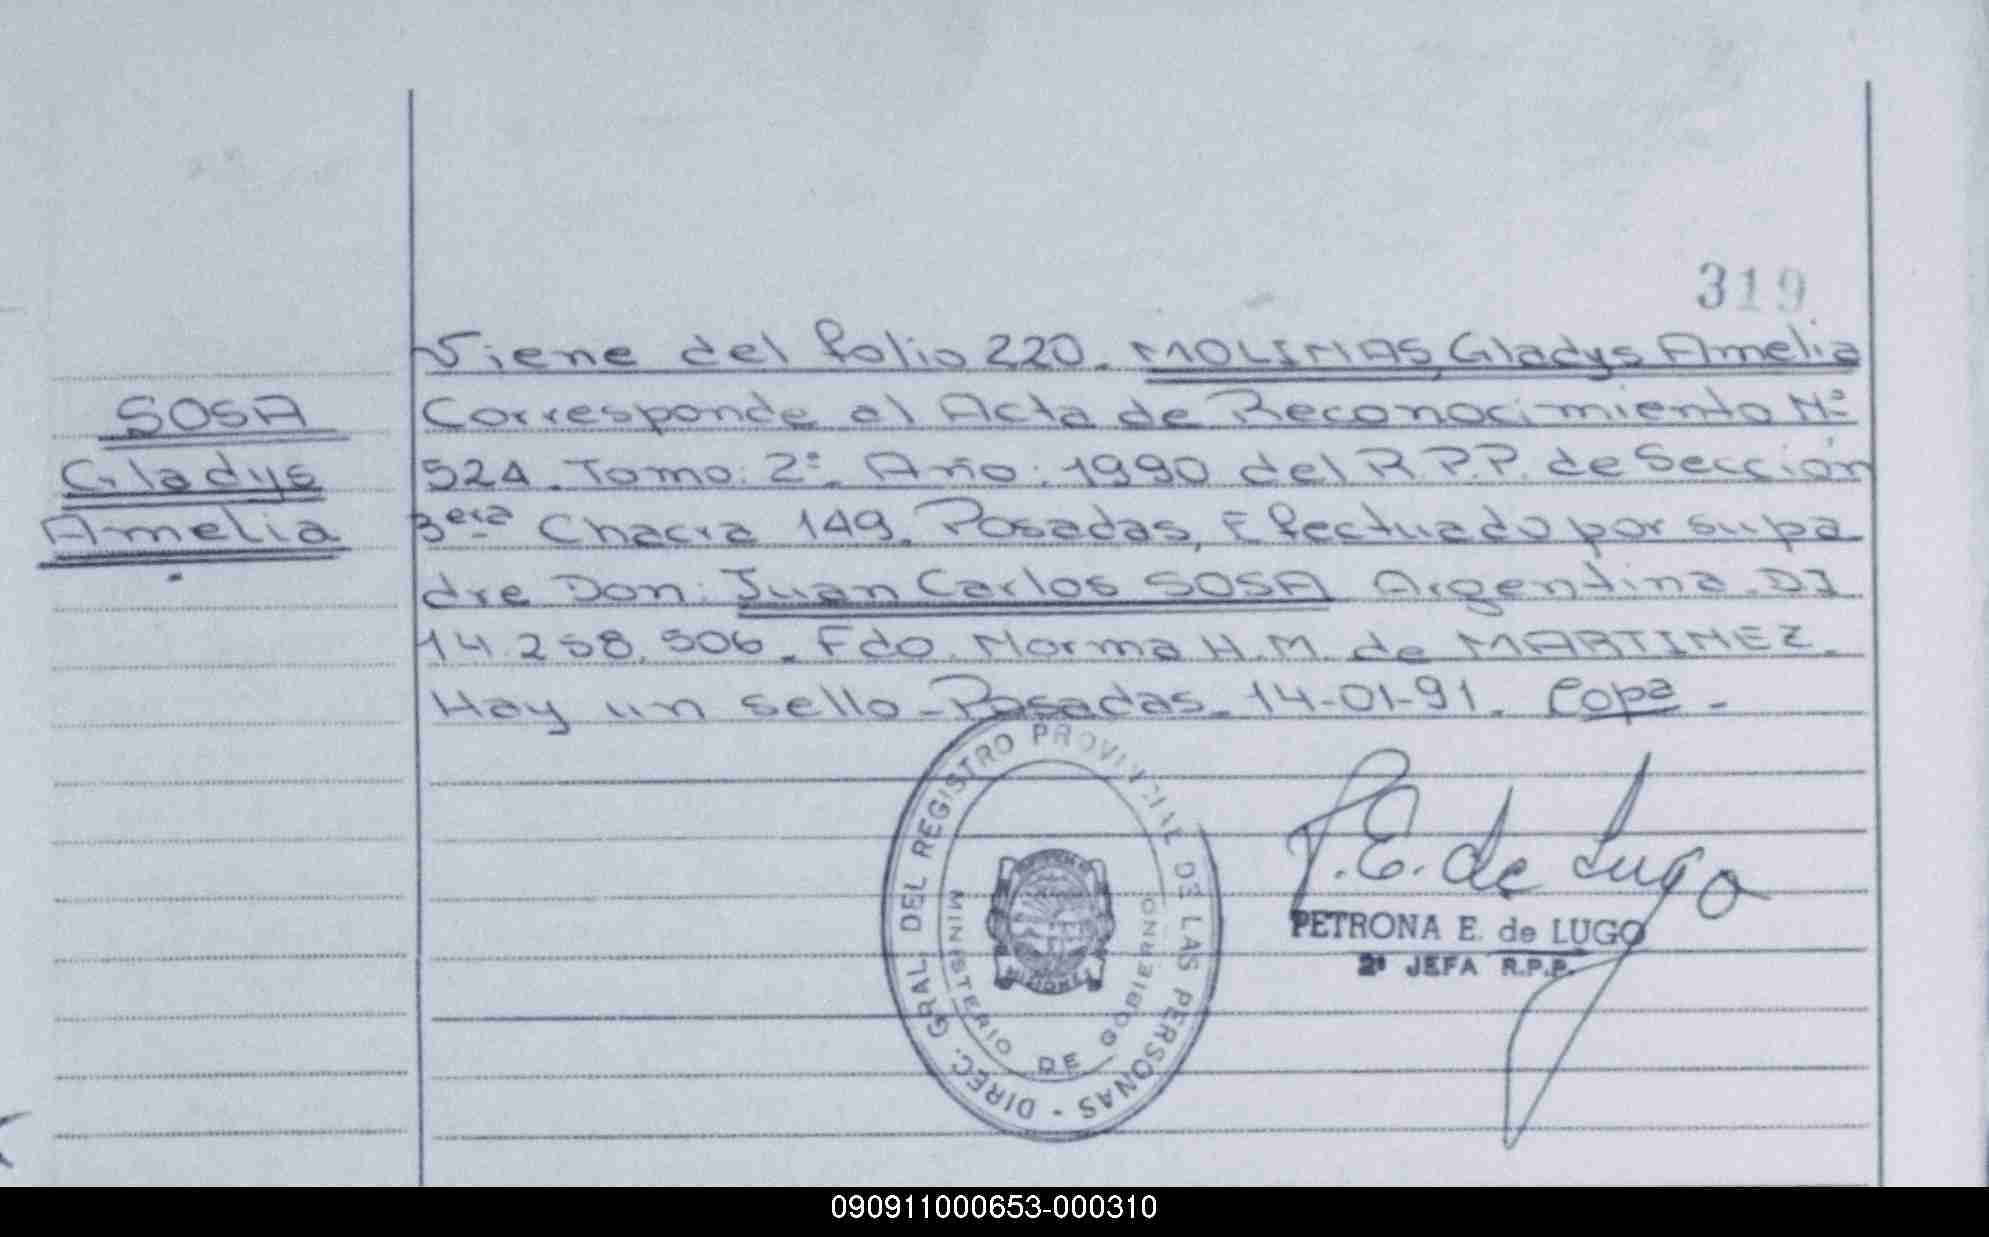 319
Viene del folio 220. MOLINAS, Gladys Amelia
SOSA
Gladys
Amelia
Corresponde al Acta de Reconocimiento Nº
524. Tomo: 2º. Año: 1990 del R.P.P. de Sección
3era Chacra 149. Posadas, Efectuado por su pa
dre Don: Juan Carlos SOSA Argentina. DI
14.258.506. Fdo. Norma H.M. de MARTINEZ.
Hay un sello - Posadas. 14-01-91. Copa -
DIREC. GRAL. DEL REGISTRO PROVINCIAL DE LAS PERSONAS -
MINISTERIO DE GOBIERNO
P.E. de Lugo
PETRONA E. de LUGO
2º JEFA R.P.P.
090911000653-000310